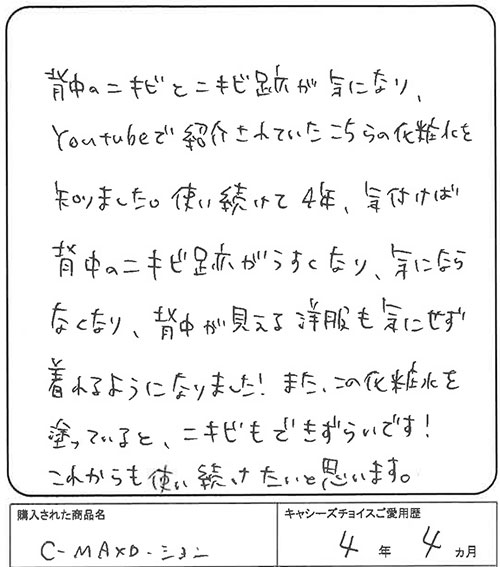 背中のニキビとニキビ跡が気になり、
Youtubeで紹介されていたこちらの化粧水を
知りました。使い続けて4年、気付けば
背中のニキビ跡がうすくなり、気になら
なくなり、背中が見える洋服も気にせず
着れるようになりました！また、この化粧水を
塗っていると、ニキビもできずらいです！
これからも使い続けたいと思います。
購入された商品名 キャシーズチョイスご愛用歴
C-MAXローション 4年 4ヵ月